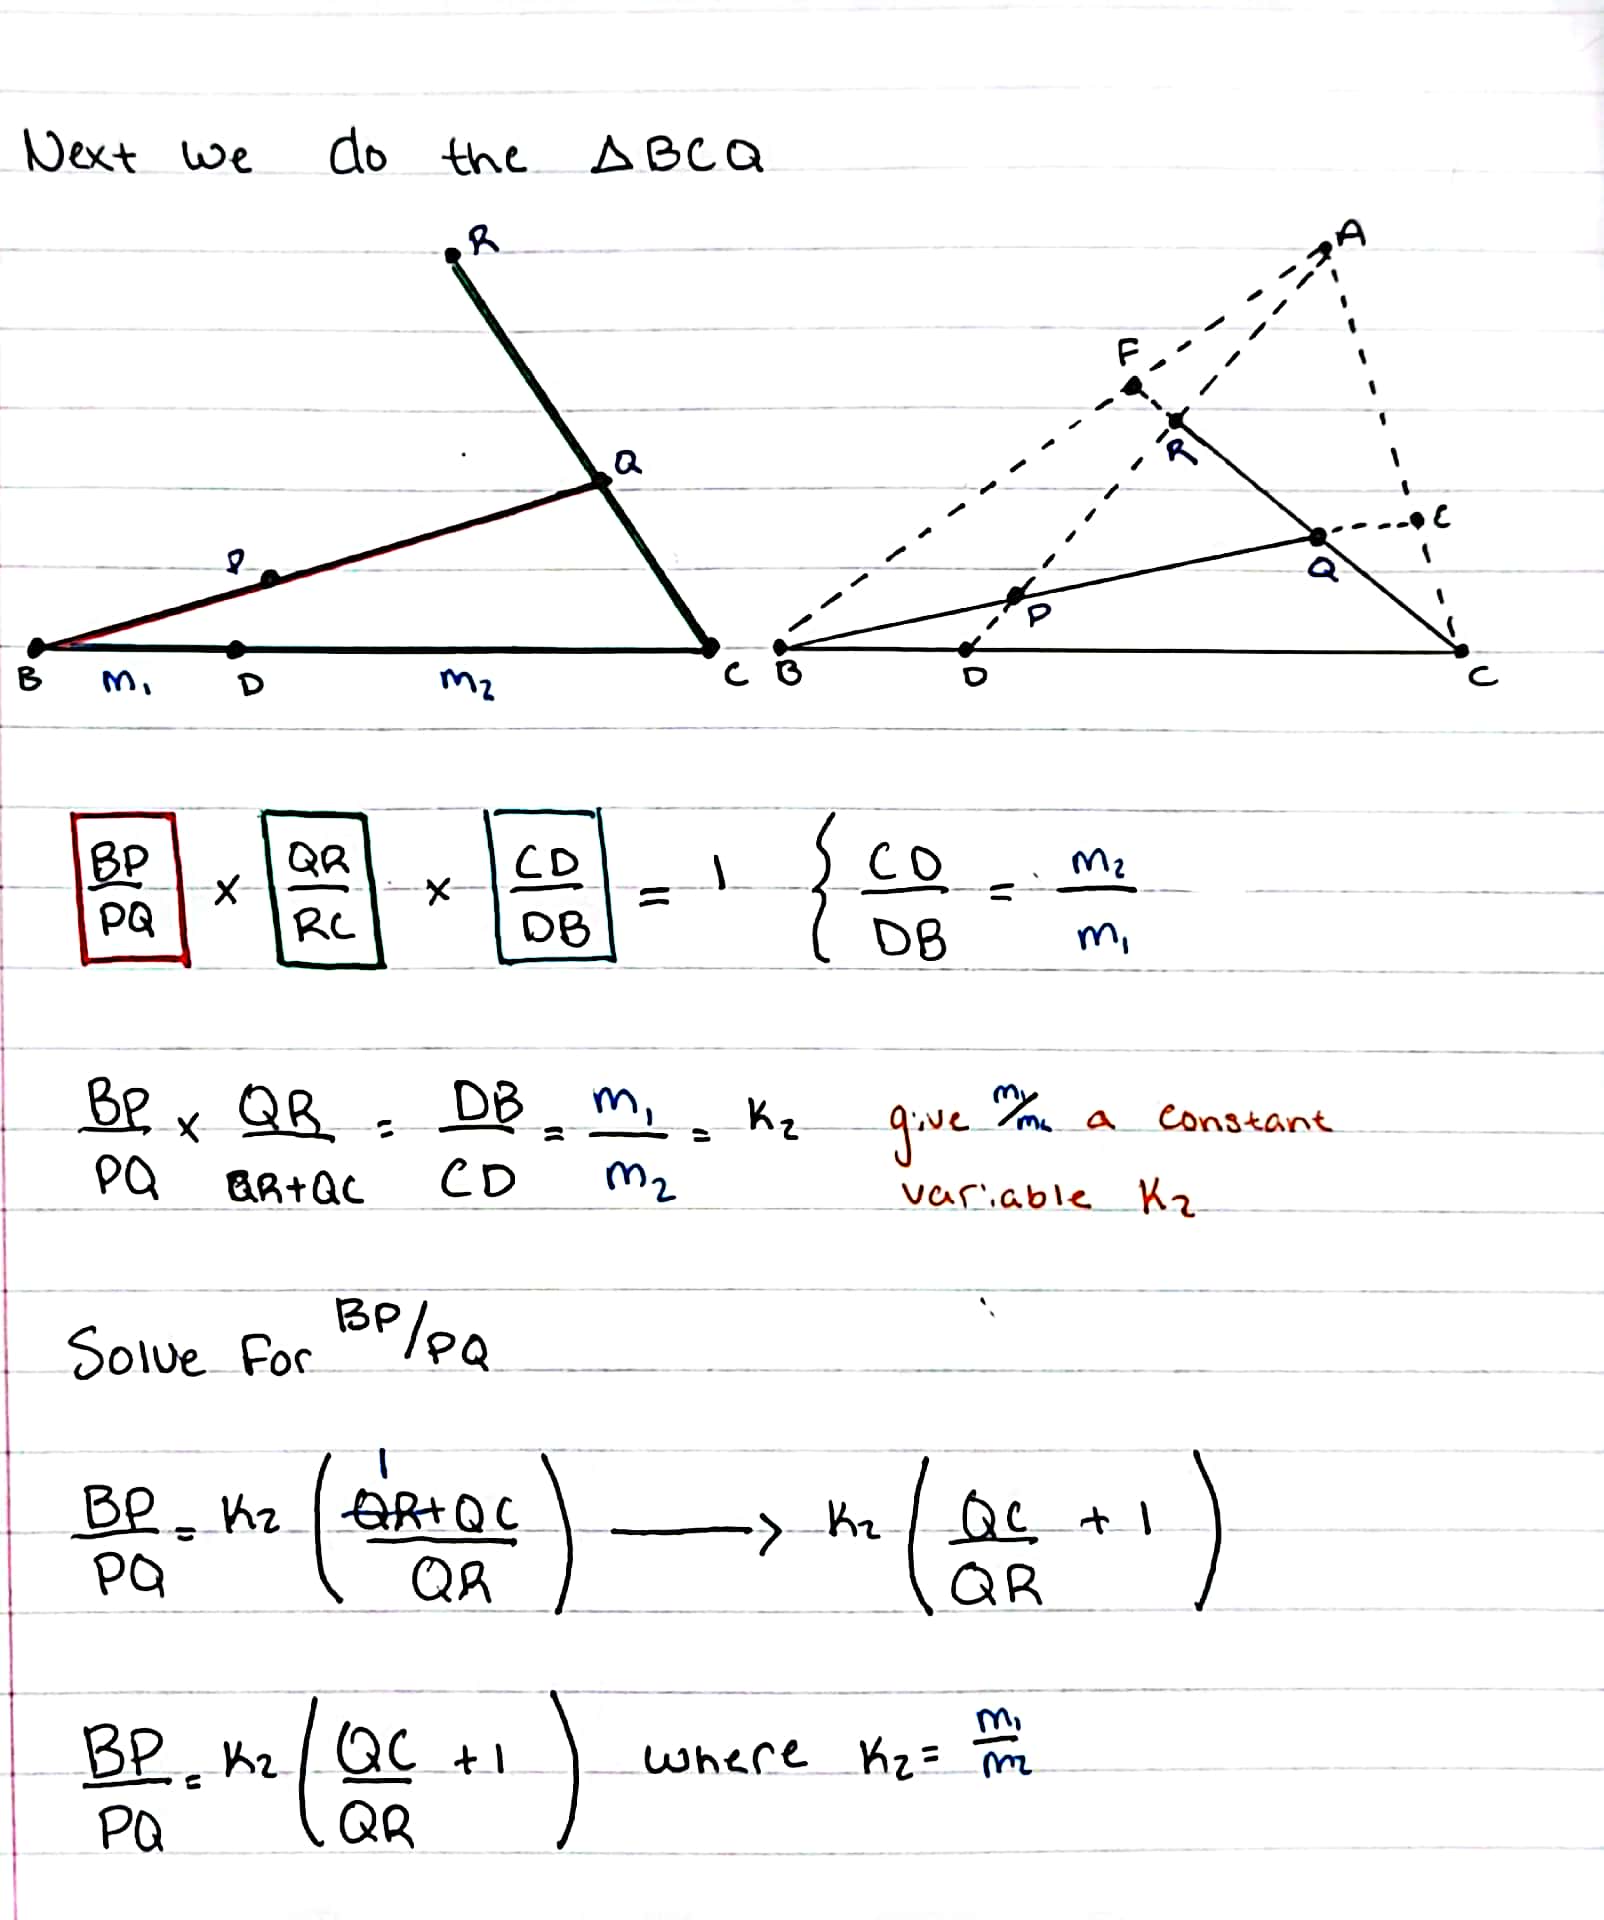 Next we do the △BCQ
R
Q
P
B m₁ D m₂ C
A
F
R
E
Q
P
B D C
BP/PQ × QR/RC × CD/DB = 1 { CD/DB = m₂/m₁
BP/PQ × QR/QR+QC = DB/CD = m₁/m₂ = K₂ give m₁/m₂ a constant
variable K₂
Solve For BP/PQ
BP/PQ = K₂ (QR+QC/QR) → K₂ (QC/QR + 1)
1
BP/PQ = K₂ (QC/QR + 1) where K₂ = m₁/m₂